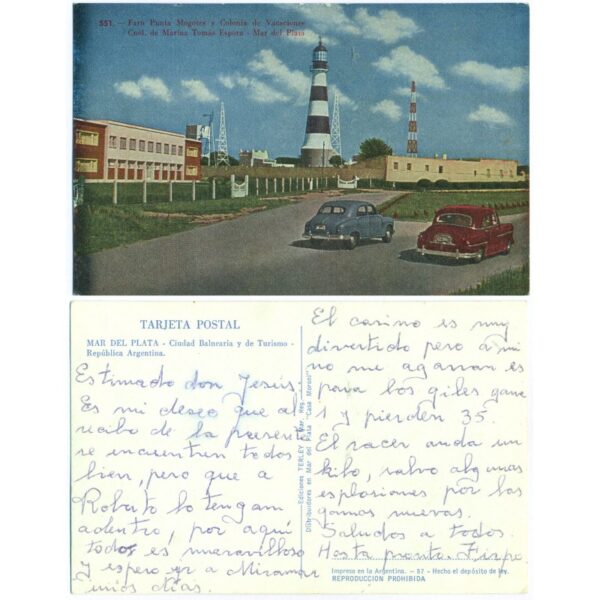 551. - Faro Punta Mogotes y Colonia de Vacaciones
Cnel. de Marina Tomás Espora - Mar del Plata
TARJETA POSTAL
MAR DEL PLATA - Ciudad Balnearia y de Turismo -
República Argentina.
Estimado don Jesús:
Es mi deseo que al
recibo de la presente
se encuentren todos
bien, pero que a
Roberto lo tengan
adentro, por aquí
todo es maravilloso
y espero ir a Miramar
unos días.
Ediciones TERLEY - Mar.
Distribuidores en Mar del Plata "Casa Moroni"
El casino es muy
divertido pero a mi
no me agarran es
para los giles gana
1 y pierden 35.
El racer anda un
kilo, salvo algunas
explosiones por las
gomas nuevas.
Saludos a todos.
Hasta pronto. Firpo
Impreso en la Argentina. - 57 - Hecho el depósito de ley.
REPRODUCCION PROHIBIDA